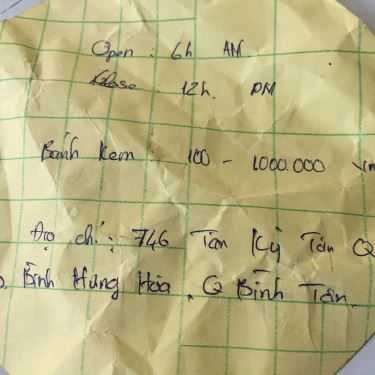 Open : 6h AM
Close : 12h. PM
Bánh Kem : 100 - 1000.000
Địa chỉ : 746 Tân Kỳ Tân Q
Bình Hưng Hòa, Q Bình Tân.